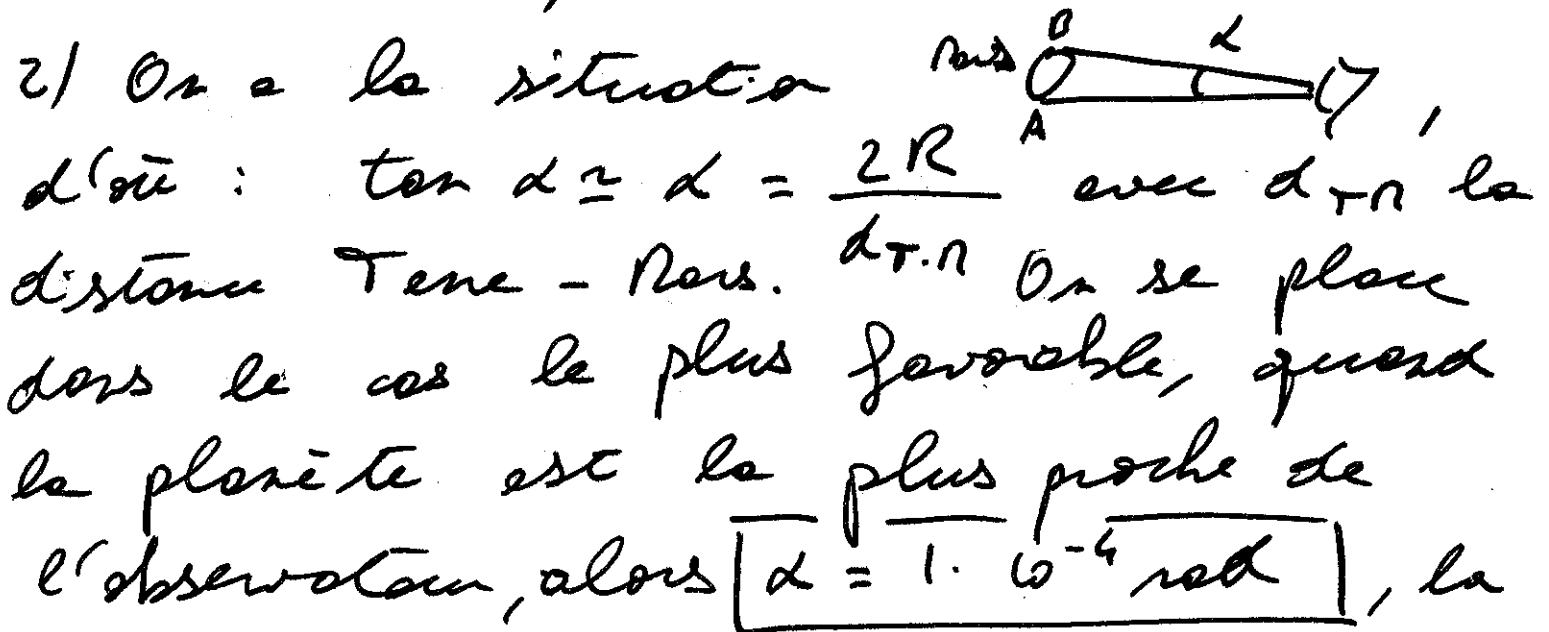 2/ On a la situation Mars B A α ,
d'où : tan α ≃ α = 2R / d_T-M avec d_T-M la
distance Terre - Mars. On se place
dans le cas le plus favorable, quand
la planète est la plus proche de
l'observateur, alors α = 1. 10^-4 rad , la